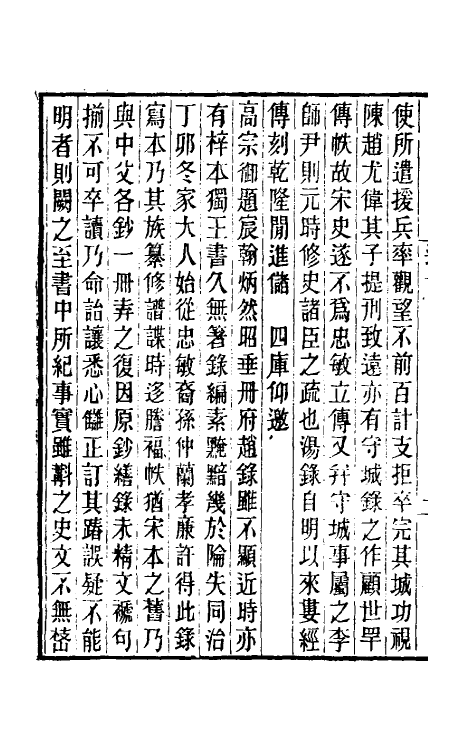 使所遣援兵率觀望不前百計支拒卒完其城功視
陳趙尤偉其子提刑致遠亦有守城錄之作顧世罕
傳帙故宋史遂不爲忠敏立傳又幷守城事屬之李
師尹則元時修史諸臣之疏也湯錄自明以來婁經
傳刻乾隆閒進儲　四庫仰邀
高宗御題宸翰炳然昭垂冊府趙錄雖不顯近時亦
有梓本獨王書久無箸錄編素黤黯幾於陯失同治
丁卯冬家大人始從忠敏裔孫仲蘭孝廉許得此錄
寫本乃其族纂修譜諜時迻謄福帙猶宋本之舊乃
與中父各鈔一冊弆之復因原鈔繕錄未精文褫句
揃不可卒讀乃命詒讓悉心讎正訂其踳誤疑不能
明者則闕之至書中所紀事實雖斠之史文不無嵍